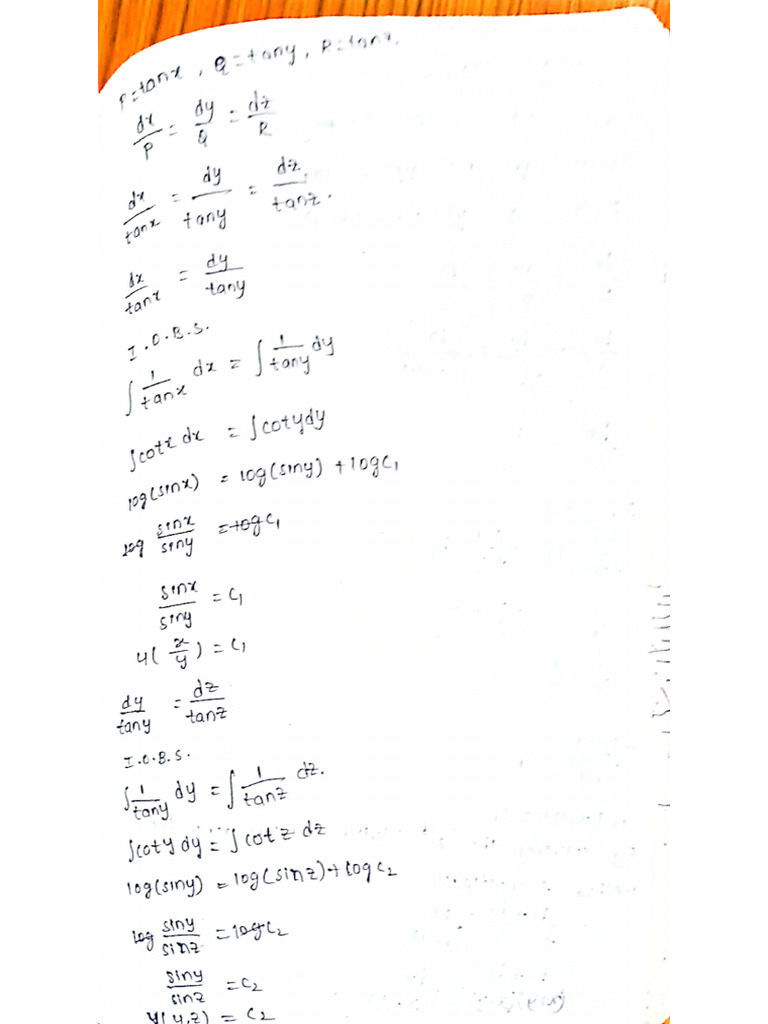 P=tanx, Q=tany, R=tanz.
dx/P = dy/Q = dz/R
dx/tanx = dy/tany = dz/tanz.
dx/tanx = dy/tany
I.O.B.S.
∫ 1/tanx dx = ∫ 1/tany dy
∫cotx dx = ∫cotydy
log(sinx) = log(siny) + logc₁
log sinx/siny = logc₁
sinx/siny = c₁
u(x/y) = c₁
dy/tany = dz/tanz
I.O.B.S.
∫ 1/tany dy = ∫ 1/tanz dz.
∫coty dy = ∫cotz dz
log(siny) = log(sinz) + logc₂
log siny/sinz = logc₂
siny/sinz = c₂
v(y,z) = c₂